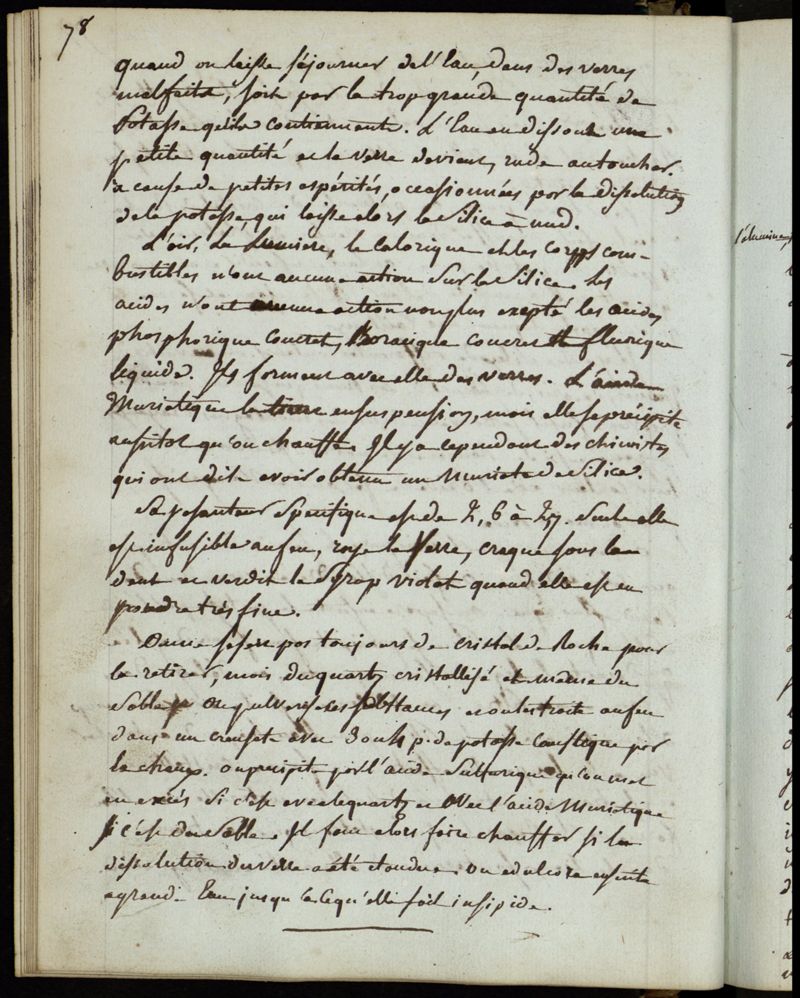 78
quand on laisse séjourner de l'Eau dans des verres
malfaits, soit par la trop grande quantité de
Potasse qu'ils contiennent. L'Eau en dissout une
petite quantité et le verre devient rude au toucher.
a cause de petites aspérités, occasionnées par la dissolution
de la potasse, qui laisse alors la Silice à nud.
L'air, La Lumiere, le Calorique et les Corps com-
bustibles n'ont aucune action sur la Silice. les
acides n'ont aucune action non plus excepté les acides
phosphorique concret, Boracique concret et fluorique
liquide. Ils forment avec elle des verres. L'acide
Muriatique la tient en suspension, mais elle se précipite
aussitot qu'on chauffe. Il y a cependant des chimistes
qui ont dit avoir obtenu un Muriate de Silice.
Sa pesanteur Spécifique est de 2,6 à 2,7. Seule elle
est infusible au feu, raye le Verre, craque sous la
dent et verdit le Syrop violat quand elle est en
poudre très fine.
On ne se sert pas toujours de cristal de Roche pour
la retirer, mais du quartz cristallisé et même du
Sable. On pulverise ces substances et on les traite au feu
dans un creuset avec 3 ou 4 p. de potasse Caustique par
la chaux. on précipite par l'acide Sulfurique qu'on met
en excès si c'est avec le quartz et avec l'acide Muriatique
si c'est du Sable. Il faut alors faire chauffer si la
dissolution du verre a été étendue. On edulcore ensuite
a grande Eau jusqu'à ce qu'elle soit insipide.
l'alumine